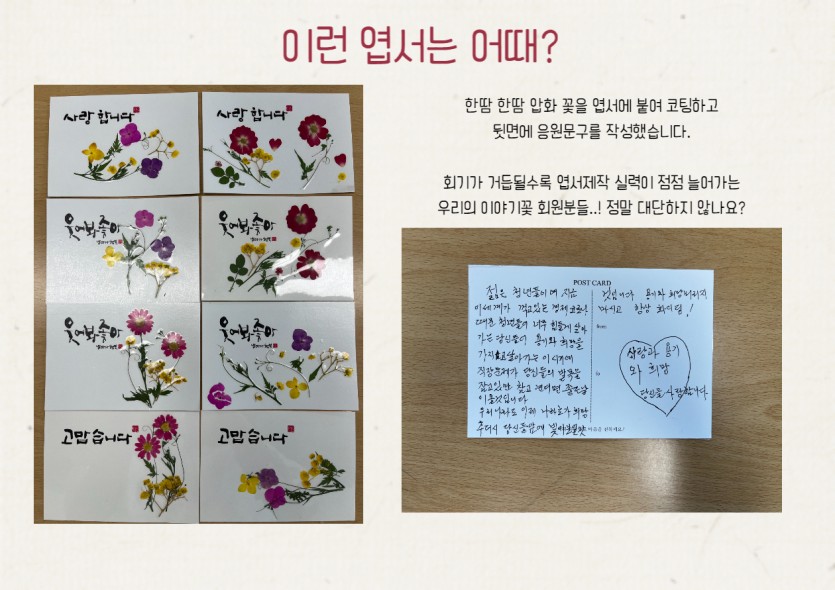 이런 엽서는 어때?
한땀 한땀 압화 꽃을 엽서에 붙여 코팅하고
뒷면에 응원문구를 작성했습니다.
회기가 거듭될수록 엽서제작 실력이 점점 늘어가는
우리의 이야기꽃 회원분들..! 정말 대단하지 않나요?
사랑합니다
사랑합니다
웃어봐좋아
웃어봐좋아
웃어봐좋아
웃어봐좋아
고맙습니다
고맙습니다
POST CARD
젊은 청년들이여 지금
이 세계가 겪고있는 경제
청년들이 너무 힘들게 살아
가는 당신들이 용기와 희망을
가지고 살아가는 이 시기에
직장문제가 당신들의 발목을
잡고있만 참고 견디면 좋은날
이 올것입니다
우리나라도 이제
주다시 당신들 앞에
용기와 희망 버리지
마시고 항상 화이팅!
From
To
사랑과 용기
와 희망
당신을 사랑합니다